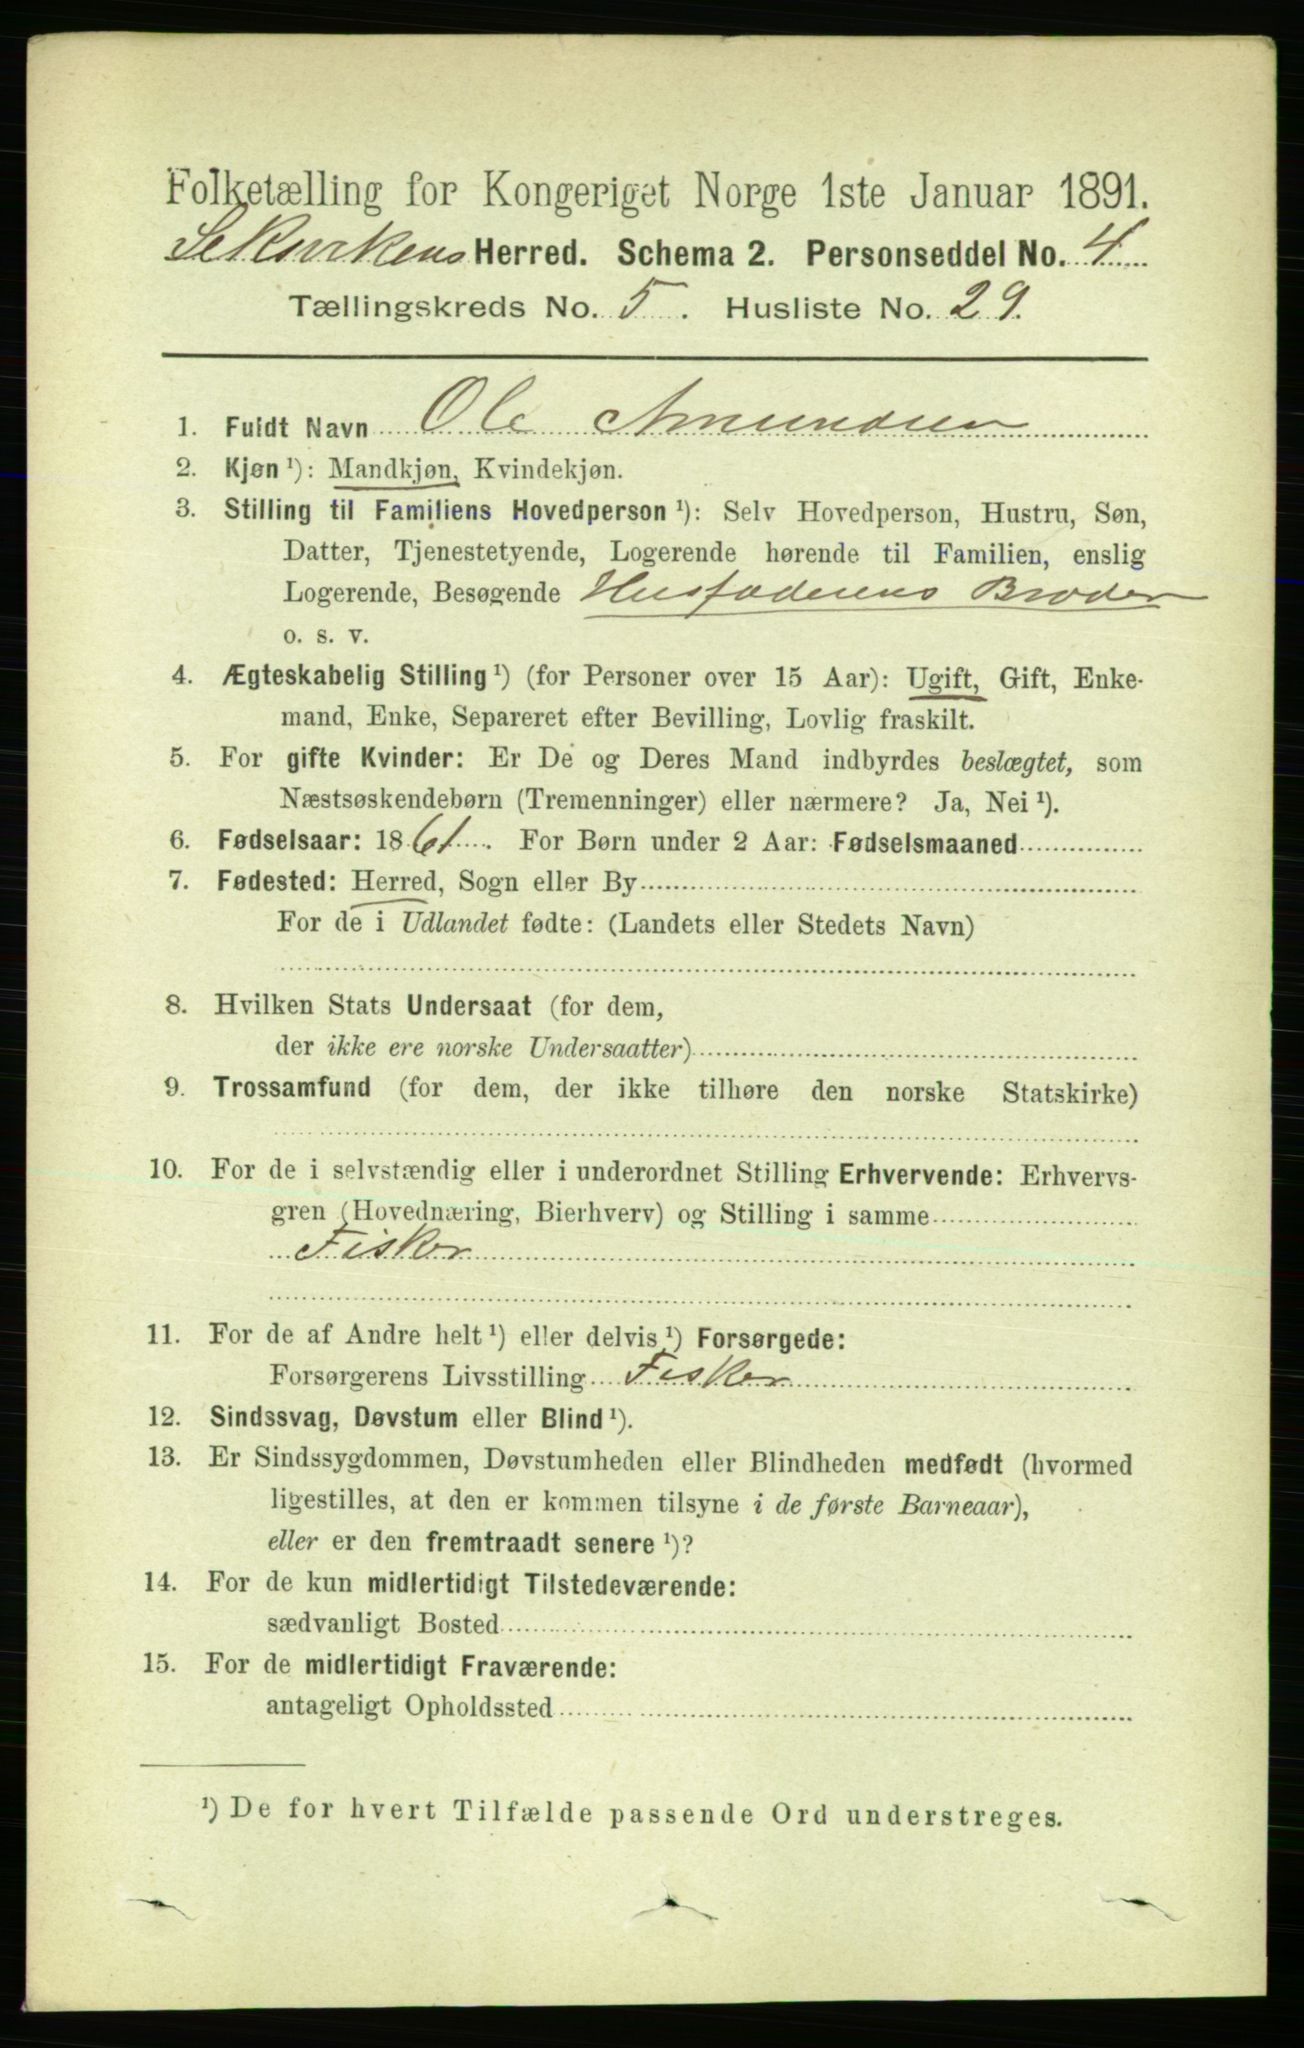 Folketælling for Kongeriget Norge 1ste Januar 1891.
Herred. Schema 2. Personseddel No. 4
Tællingskreds No. 5. Husliste No. 29.
1. Fuldt Navn Ole Amundsen
2. Kjøn ¹): Mandkjøn, Kvindekjøn.
3. Stilling til Familiens Hovedperson ¹): Selv Hovedperson, Hustru, Søn,
Datter, Tjenestetyende, Logerende hørende til Familien, enslig
Logerende, Besøgende Husfaderens Broder
o. s. v.
4. Ægteskabelig Stilling ¹) (for Personer over 15 Aar): Ugift, Gift, Enke-
mand, Enke, Separeret efter Bevilling, Lovlig fraskilt.
5. For gifte Kvinder: Er De og Deres Mand indbyrdes beslægtet, som
Næstsøskendebørn (Tremenninger) eller nærmere? Ja, Nei ¹).
6. Fødselsaar: 1861. For Børn under 2 Aar: Fødselsmaaned
7. Fødested: Herred, Sogn eller By
For de i Udlandet fødte: (Landets eller Stedets Navn)
8. Hvilken Stats Undersaat (for dem,
der ikke ere norske Undersaatter)
9. Trossamfund (for dem, der ikke tilhøre den norske Statskirke)
10. For de i selvstændig eller i underordnet Stilling Erhvervende: Erhvervs-
gren (Hovednæring, Bierhverv) og Stilling i samme
Fisker
11. For de af Andre helt ¹) eller delvis ¹) Forsørgede:
Forsørgerens Livsstilling Fisker
12. Sindssvag, Døvstum eller Blind ¹).
13. Er Sindssygdommen, Døvstumheden eller Blindheden medfødt (hvormed
ligestilles, at den er kommen tilsyne i de første Barneaar),
eller er den fremtraadt senere ¹)?
14. For de kun midlertidigt Tilstedeværende:
sædvanligt Bosted
15. For de midlertidigt Fraværende:
antageligt Opholdssted
¹) De for hvert Tilfælde passende Ord understreges.